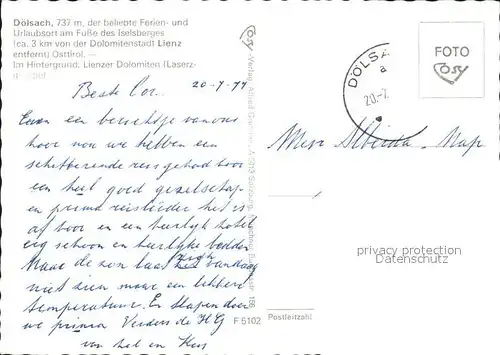 Dölsach, 737 m, der beliebte Ferien- und
Urlaubsort am Fuße des Iselsberges
(ca. 3 km von der Dolomitenstadt Lienz
entfernt) Osttirol. —
Im Hintergrund: Lienzer Dolomiten (Laserz-
20-7-
Beste Cor.
Even een berichtje van ons
hoor van we hebben een
schitterende reis gehad hoor
een heel goed gezelschap
en prima reisleider het is
af hoor en een heerlijk hotel
erg schoon en heerlijke bedden
Maar de zon laat zich vandaag
niet zien maar een lekkere
temperatuur. En slapen doen
we prima Verders de HG
van het en Kees
Cosy
F 5102
DÖLSA
a
20.-7.
FOTO
Cosy
privacy protection
Datenschutz
Postleitzahl